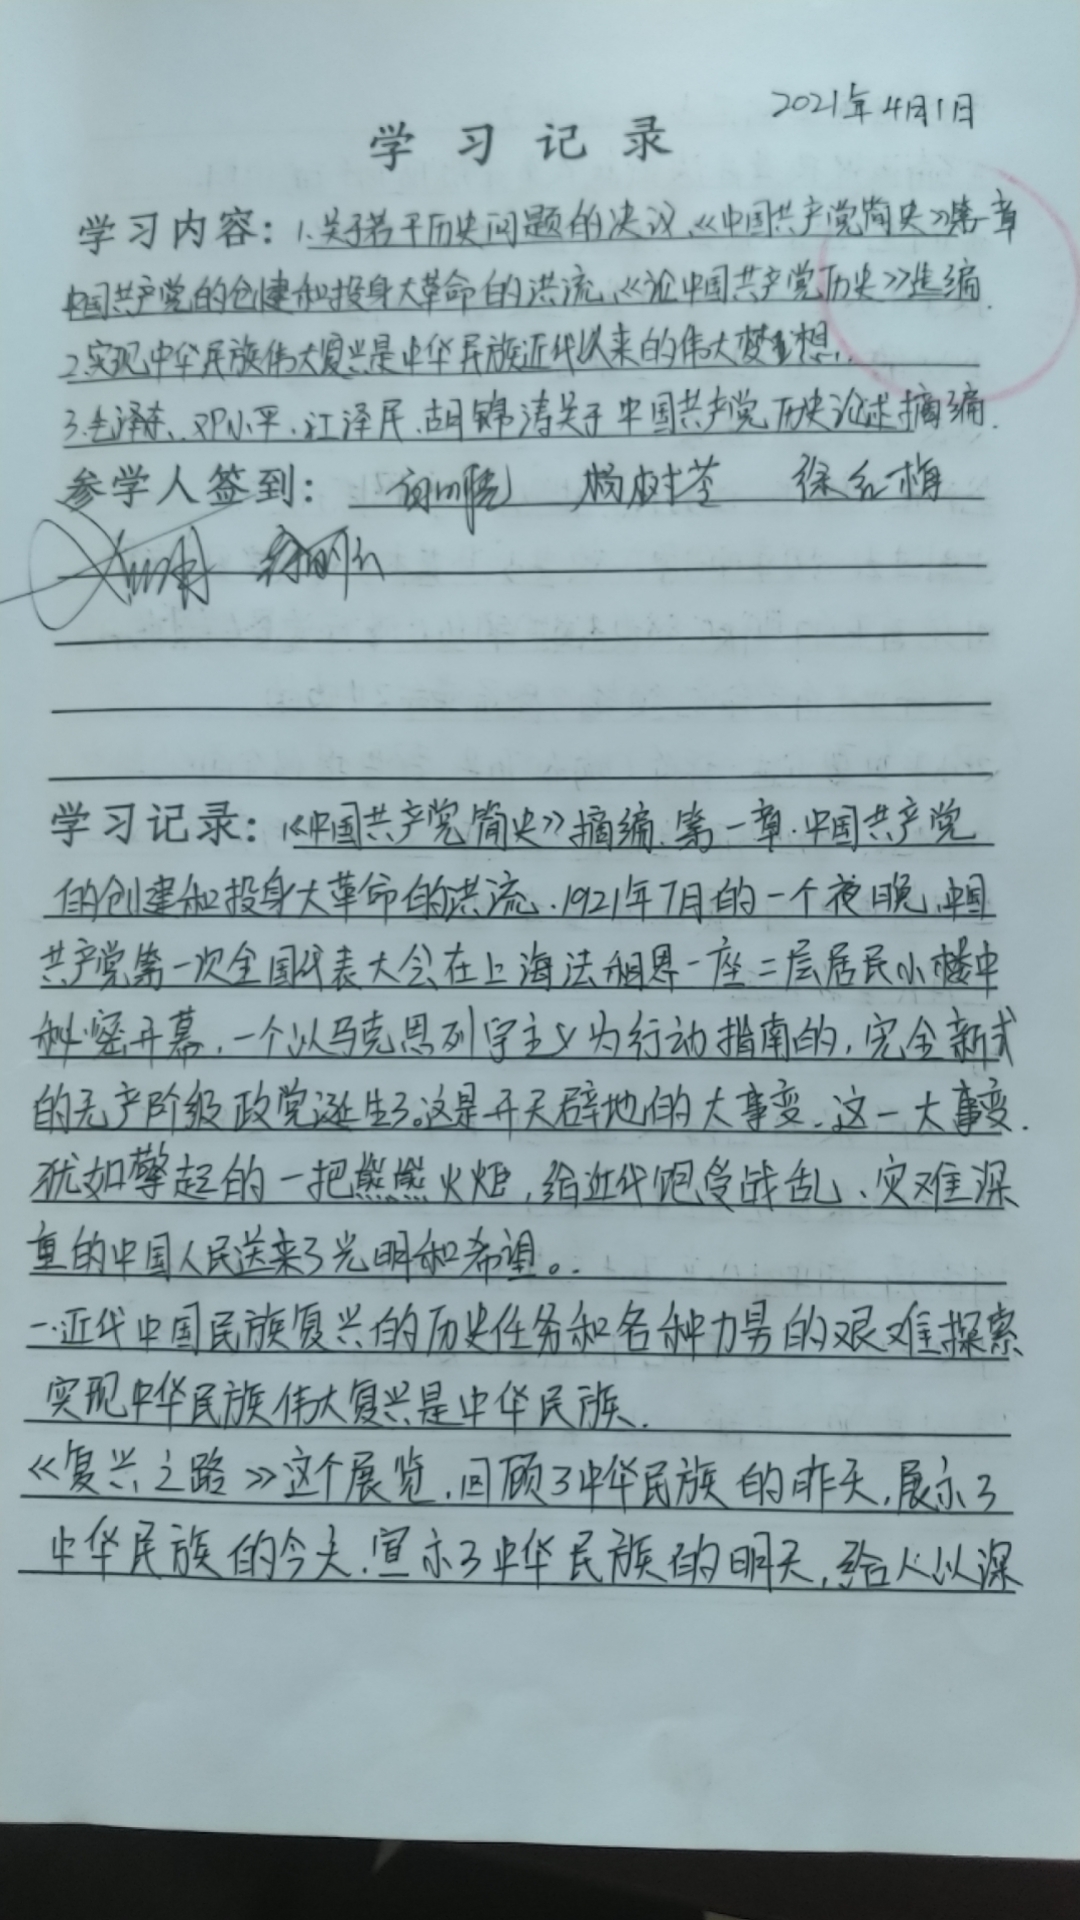 2021年4月1日
学习记录
学习内容：1.关于若干历史问题的决议、《中国共产党简史》第一章
中国共产党的创建和投身大革命的洪流、《论中国共产党历史》选编.
2.实现中华民族伟大复兴是中华民族近代以来的伟大梦想.
3.毛泽东、邓小平、江泽民、胡锦涛关于中国共产党历史论述摘编.
参学人签到： 杨树苓 徐红梅
学习记录：1.《中国共产党简史》摘编.第一章.中国共产党
的创建和投身大革命的洪流.1921年7月的一个夜晚,中国
共产党第一次全国代表大会在上海法租界一座二层居民小楼中
秘密开幕,一个以马克思列宁主义为行动指南的,完全新式
的无产阶级政党诞生了。这是开天辟地的大事变.这一大事变.
犹如擎起的一把熊熊火炬,给近代饱受战乱、灾难深
重的中国人民送来了光明和希望。.
一.近代中国民族复兴的历史任务和各种力量的艰难探索
实现中华民族伟大复兴是中华民族.
《复兴之路》这个展览.回顾了中华民族的昨天,展示了
中华民族的今天.宣示了中华民族的明天,给人以深